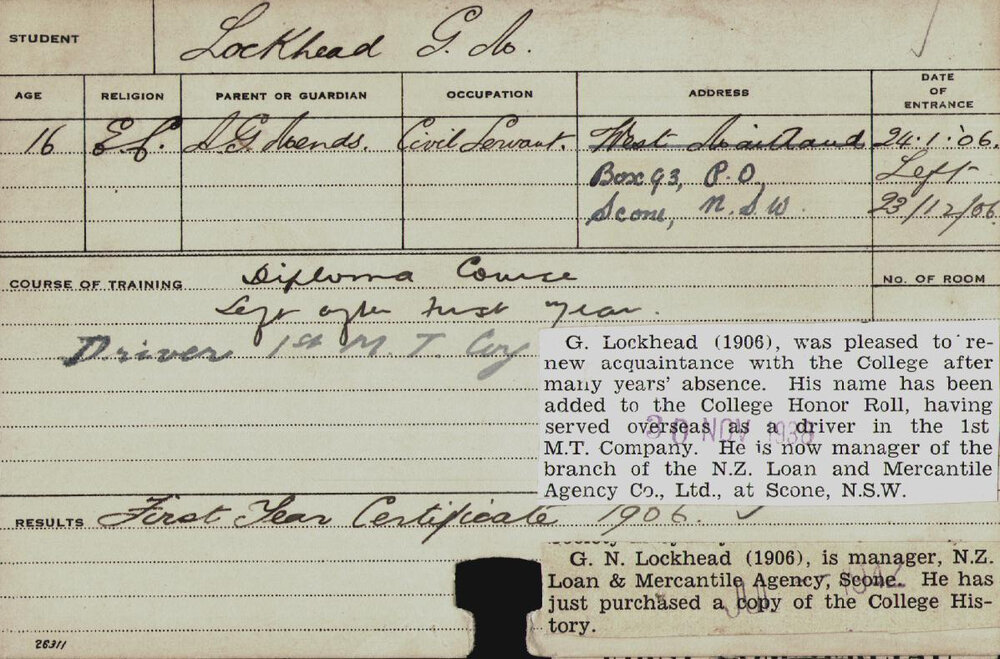 STUDENT
Lockhead G. N.
AGE
RELIGION
PARENT OR GUARDIAN
OCCUPATION
ADDRESS
DATE
OF
ENTRANCE
16
A. G. Mends.
Civil Servant.
West Maitland
24.1.'06.
Box 93, P.O.
Left
Scone, N.S.W.
23/12/06
COURSE OF TRAINING
Diploma Course
NO. OF ROOM
Left after First Year.
Driver 1st M. T. Coy
G. Lockhead (1906), was pleased to re-
new acquaintance with the College after
many years' absence. His name has been
added to the College Honor Roll, having
served overseas as a driver in the 1st
30 NOV 1938
M.T. Company. He is now manager of the
branch of the N.Z. Loan and Mercantile
Agency Co., Ltd., at Scone, N.S.W.
RESULTS
First Year Certificate 1906.
G. N. Lockhead (1906), is manager, N.Z.
Loan & Mercantile Agency, Scone. He has
just purchased a copy of the College His-
tory.
1942
26311